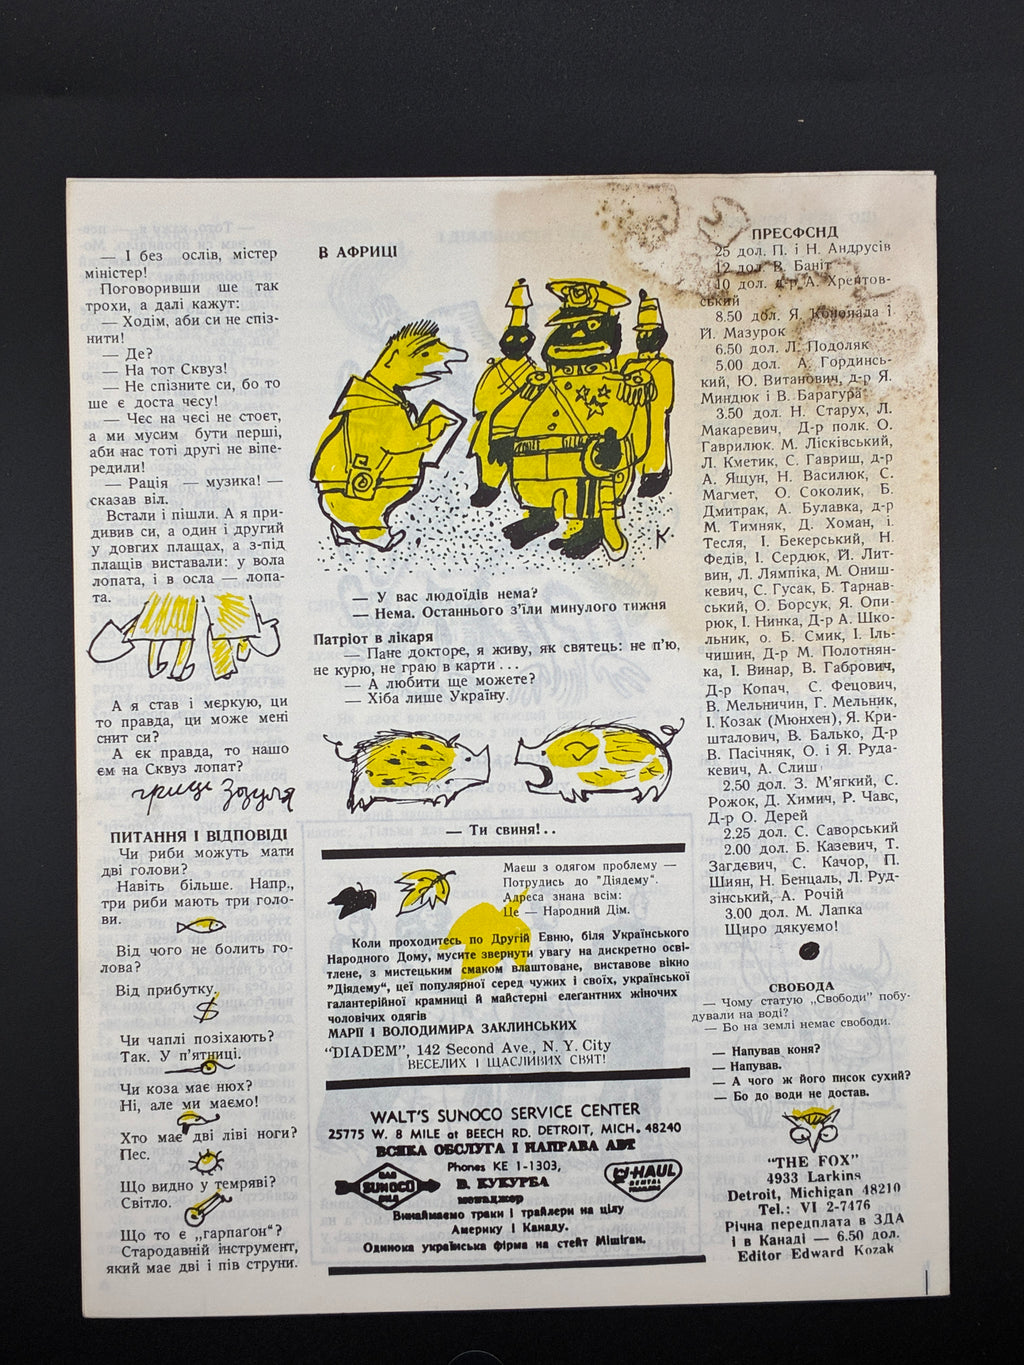 — І без ослів, містер
міністер!
Поговоривши ше так
трохи, а далі кажут:
— Ходім, аби си не спіз-
нити!
— Де?
— На тот Сквуз!
— Не спізните си, бо то
ше є доста чєсу!
— Чєс на чєсі не стоєт,
а ми мусим бути перші,
аби нас тоті другі не віпе-
редили!
— Рація — музика! —
сказав віл.
Встали і пішли. А я при-
дивив си, а один і другий
у довгих плащах, а з-під
плащів виставали: у вола
лопата, і в осла — лопа-
та.
А я став і меркую, ци
то правда, ци може мені
снит си?
А єк правда, то нашо
єм на Сквуз лопат?
грицє Зозуля
ПИТАННЯ І ВІДПОВІДІ
Чи риби можуть мати
дві голови?
Навіть більше. Напр.,
три риби мають три голо-
ви.
Від чого не болить го-
лова?
Від прибутку.
$
Чи чаплі позіхають?
Так. У п'ятниці.
Чи коза має нюх?
Ні, але ми маємо!
Хто має дві ліві ноги?
Пес.
Що видно у темряві?
Світло.
Що то є „гарпаґон"?
Стародавній інструмент,
який має дві і пів струни.
В АФРИЦІ
К
— У вас людоїдів нема?
— Нема. Останнього з'їли минулого тижня
Патріот в лікаря
— Пане докторе, я живу, як святець: не п'ю,
не курю, не граю в карти . . .
— А любити ще можете?
— Хіба лише Україну.
— Ти свиня!..
Маєш з одягом проблему —
Потрудись до "Діядему".
Адреса знана всім:
Це — Народний Дім.
Коли проходитесь по Другій Евню, біля Українського
Народного Дому, мусите звернути увагу на дискретно осві-
тлене, з мистецьким смаком влаштоване, виставове вікно
"Діядему", цеї популярної серед чужих і своїх, української
галантерійної крамниці й майстерні елеґантних жіночих
чоловічих одягів
МАРІЇ І ВОЛОДИМИРА ЗАКЛИНСЬКИХ
"DIADEM", 142 Second Ave., N. Y. City
ВЕСЕЛИХ І ЩАСЛИВИХ СВЯТ!
WALT'S SUNOCO SERVICE CENTER
25775 W. 8 MILE at BEECH RD. DETROIT, MICH. 48240
ВСЯКА ОБСЛУГА І НАПРАВА АВТ
Phones KE 1-1303,
В. КУКУРБА
менаджер
GAS
SUNOCO
OILS
U-HAUL
RENTAL
TRAILERS
Винаймаємо траки і трайлери на цілу
Америку і Канаду.
Одинока українська фірма на стейт Мішіґан.
ПРЕСФОНД
25 дол. П. і Н. Андрусів
12 дол. В. Баніт
10 дол. д-р А. Хрептов-
ський
8.50 дол. Я. Коновада і
Й. Мазурок
6.50 дол. Л. Подоляк
5.00 дол. А. Гординсь-
кий, Ю. Витанович, д-р Я.
Миндюк і В. Барагура
3.50 дол. Н. Старух, Л.
Макаревич, Д-р полк. О.
Гаврилюк. М. Лісківський,
Л. Кметик, С. Гавриш, д-р
А. Ящун, Н. Василюк, С.
Магмет, О. Соколик, Б.
Дмитрак, А. Булавка, д-р
М. Тимняк, Д. Хоман, і.
Тесля, І. Бекерський, Н.
Федів, І. Сердюк, Й. Лит-
вин, Л. Лямпіка, М. Ониш-
кевич, С. Гусак, Б. Тарнав-
ський, О. Борсук, Я. Опи-
рюк, І. Нинка, Д-р А. Шко-
льник, о. Б. Смик, І. Іль-
чишин, Д-р М. Полотнян-
ка, І. Винар, В. Габрович,
Д-р Копач, С. Фецович,
В. Мельничин, Г. Мельник,
І. Козак (Мюнхен), Я. Кри-
шталович, В. Балько, Д-р
В. Пасічняк, О. і Я. Руда-
кевич, А. Слиш
2.50 дол. З. М'ягкий, С.
Рожок, Д. Химич, Р. Чавс,
Д-р О. Дерей
2.25 дол. С. Саворський
2.00 дол. Б. Казевич, Т.
Загдєвич, С. Качор, П.
Шиян, Н. Бенцаль, Л. Руд-
зінський, А. Рочій
3.00 дол. М. Лапка
Щиро дякуємо!
СВОБОДА
— Чому статую „Свободи" побу-
дували на воді?
— Бо на землі немає свободи.
— Напував коня?
— Напував.
— А чого ж його писок сухий?
— Бо до води не достав.
"THE FOX"
4933 Larkins
Detroit, Michigan 48210
Tel.: VI 2-7476
Річна передплата в ЗДА
і в Канаді — 6.50 дол.
Editor Edward Kozak